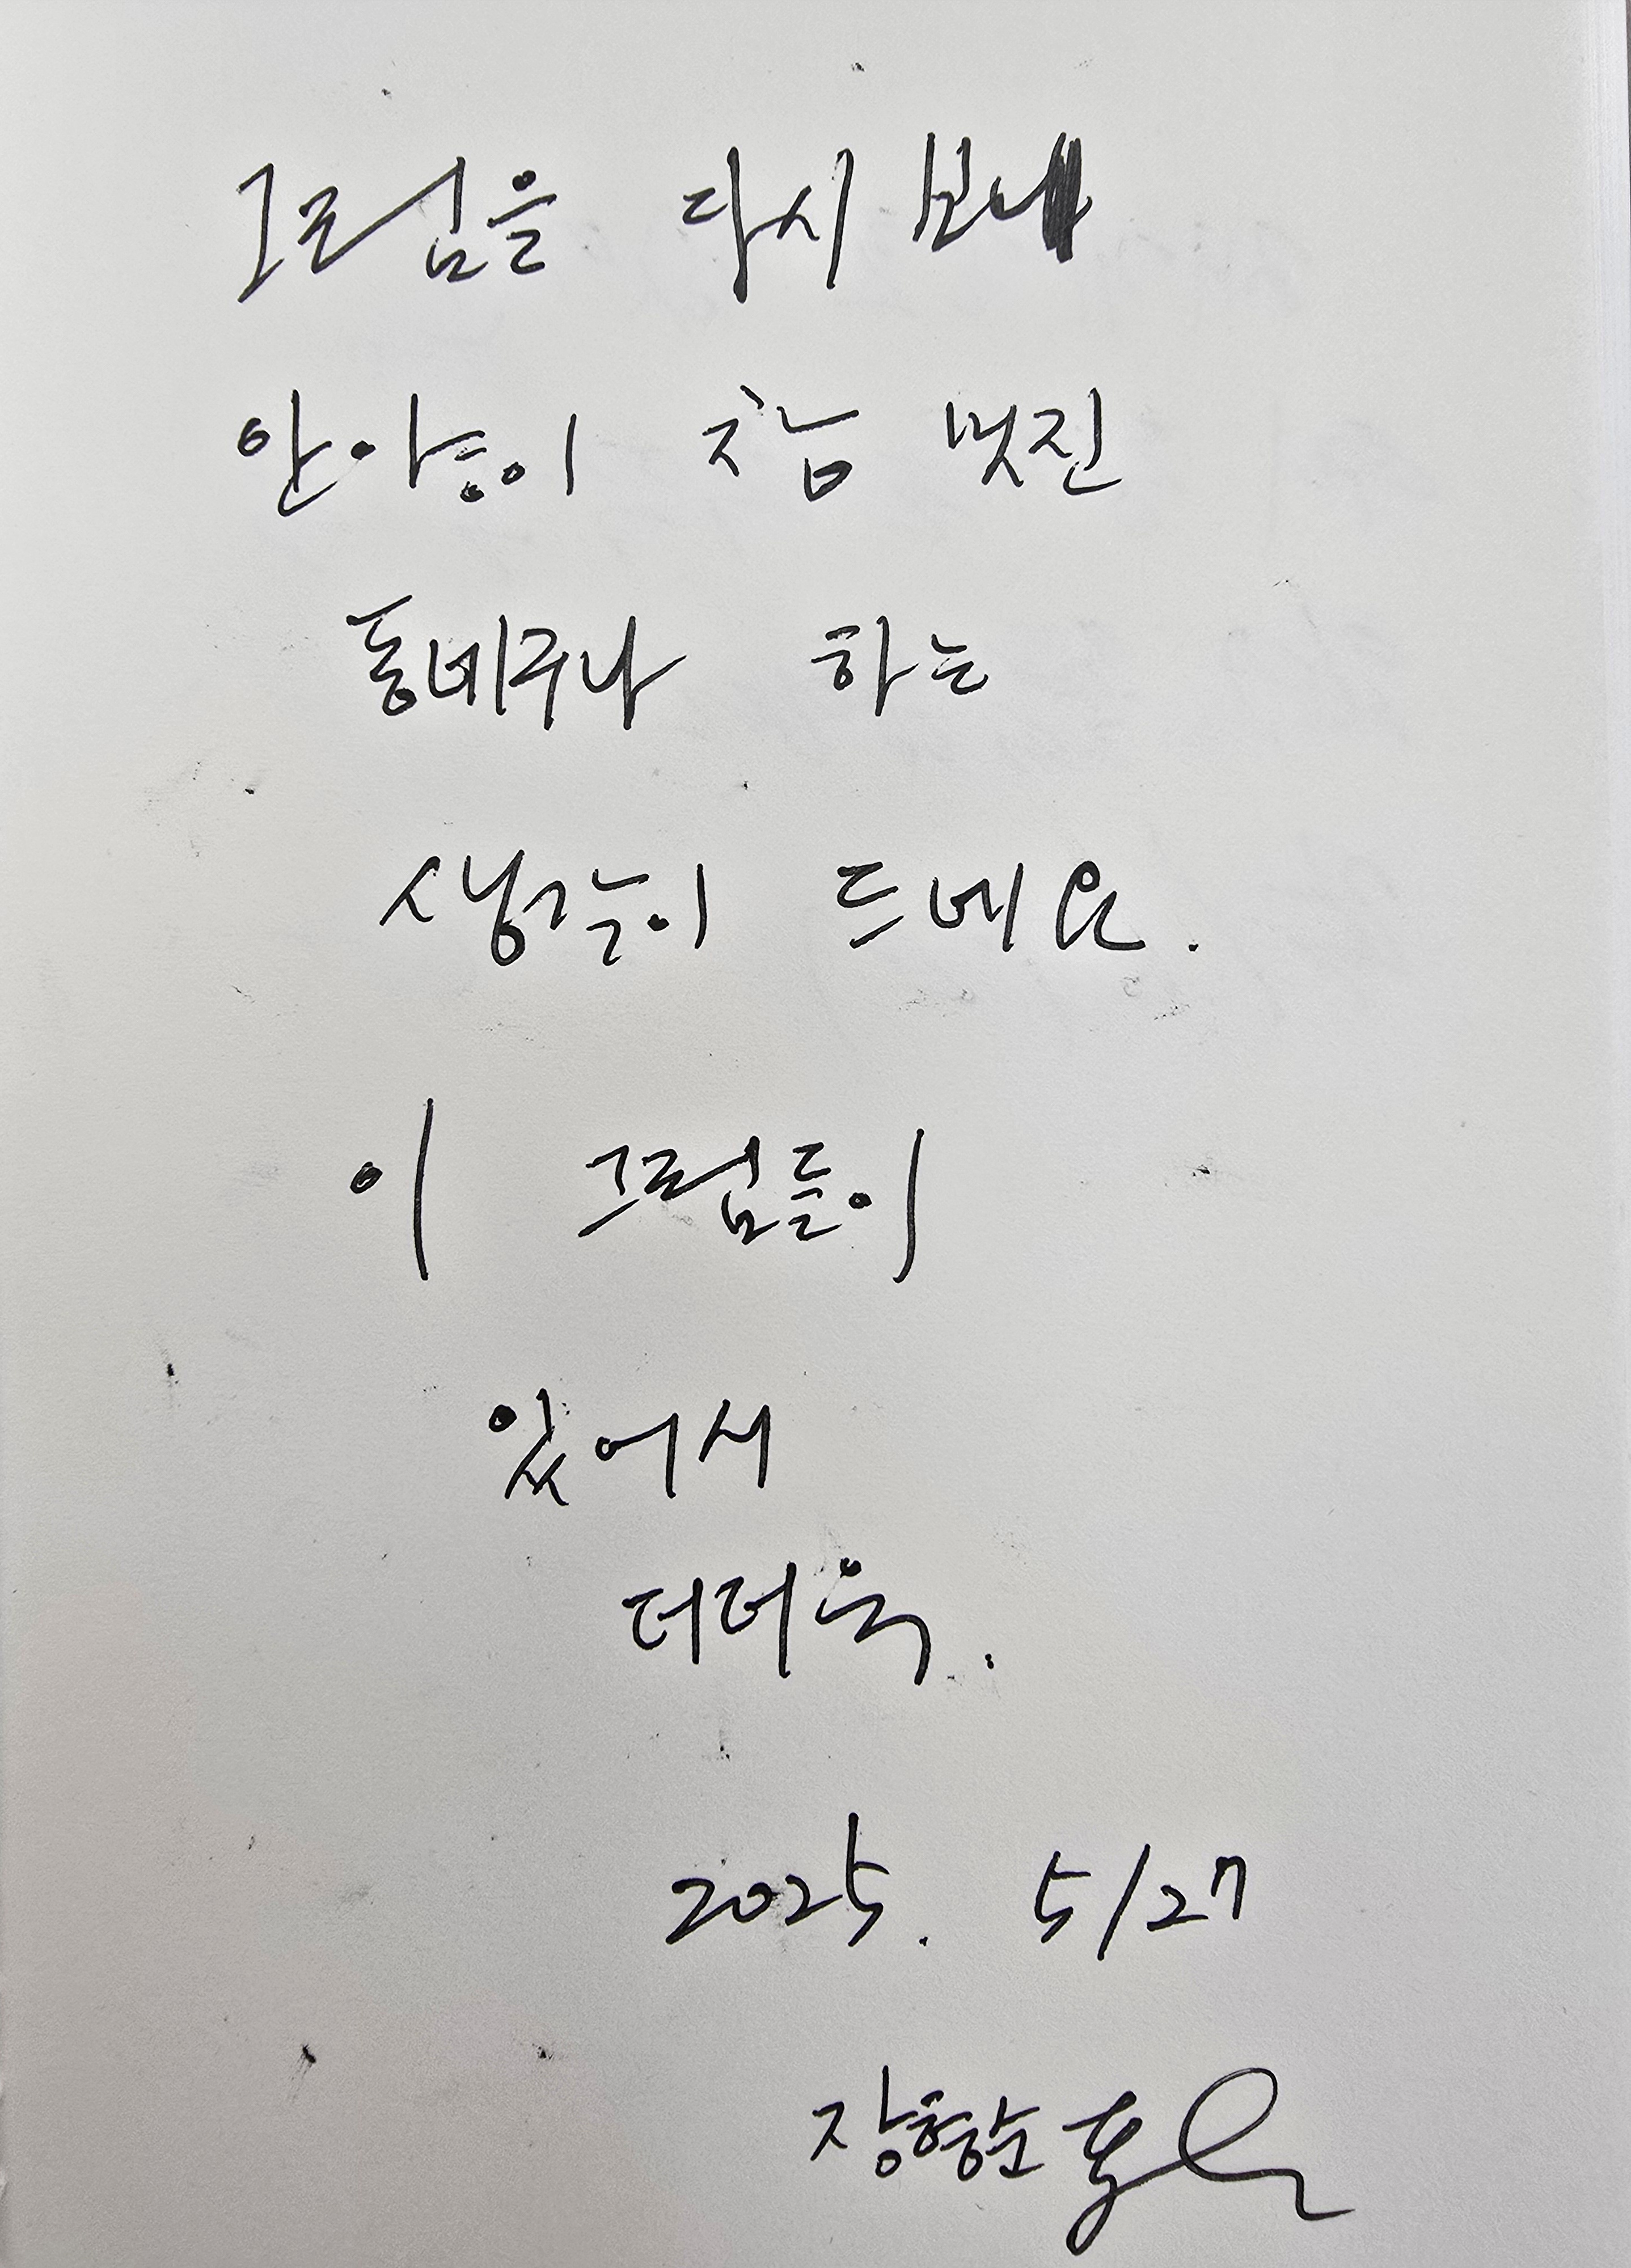 그림을 다시 보니
안양이 참 멋진
동네구나 하는
생각이 드네요.
이 그림들이
있어서
더더욱.
2025. 5/27